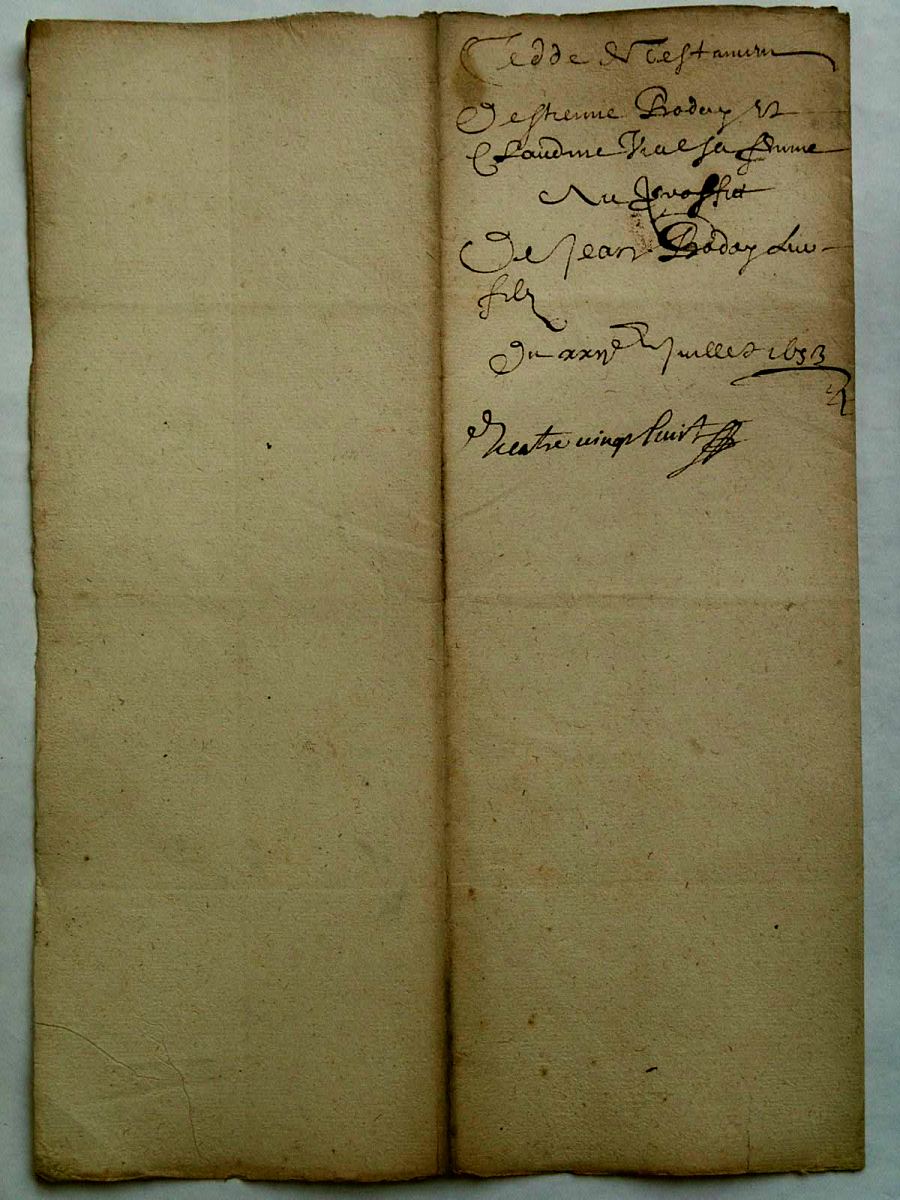 Cedde de Testament
De Estienne Roday et
Claudine Vial sa femme
Au proffit
De Jean Roday Leur
filz
Du xxvje Juillet 1653
Quatre vingt huit